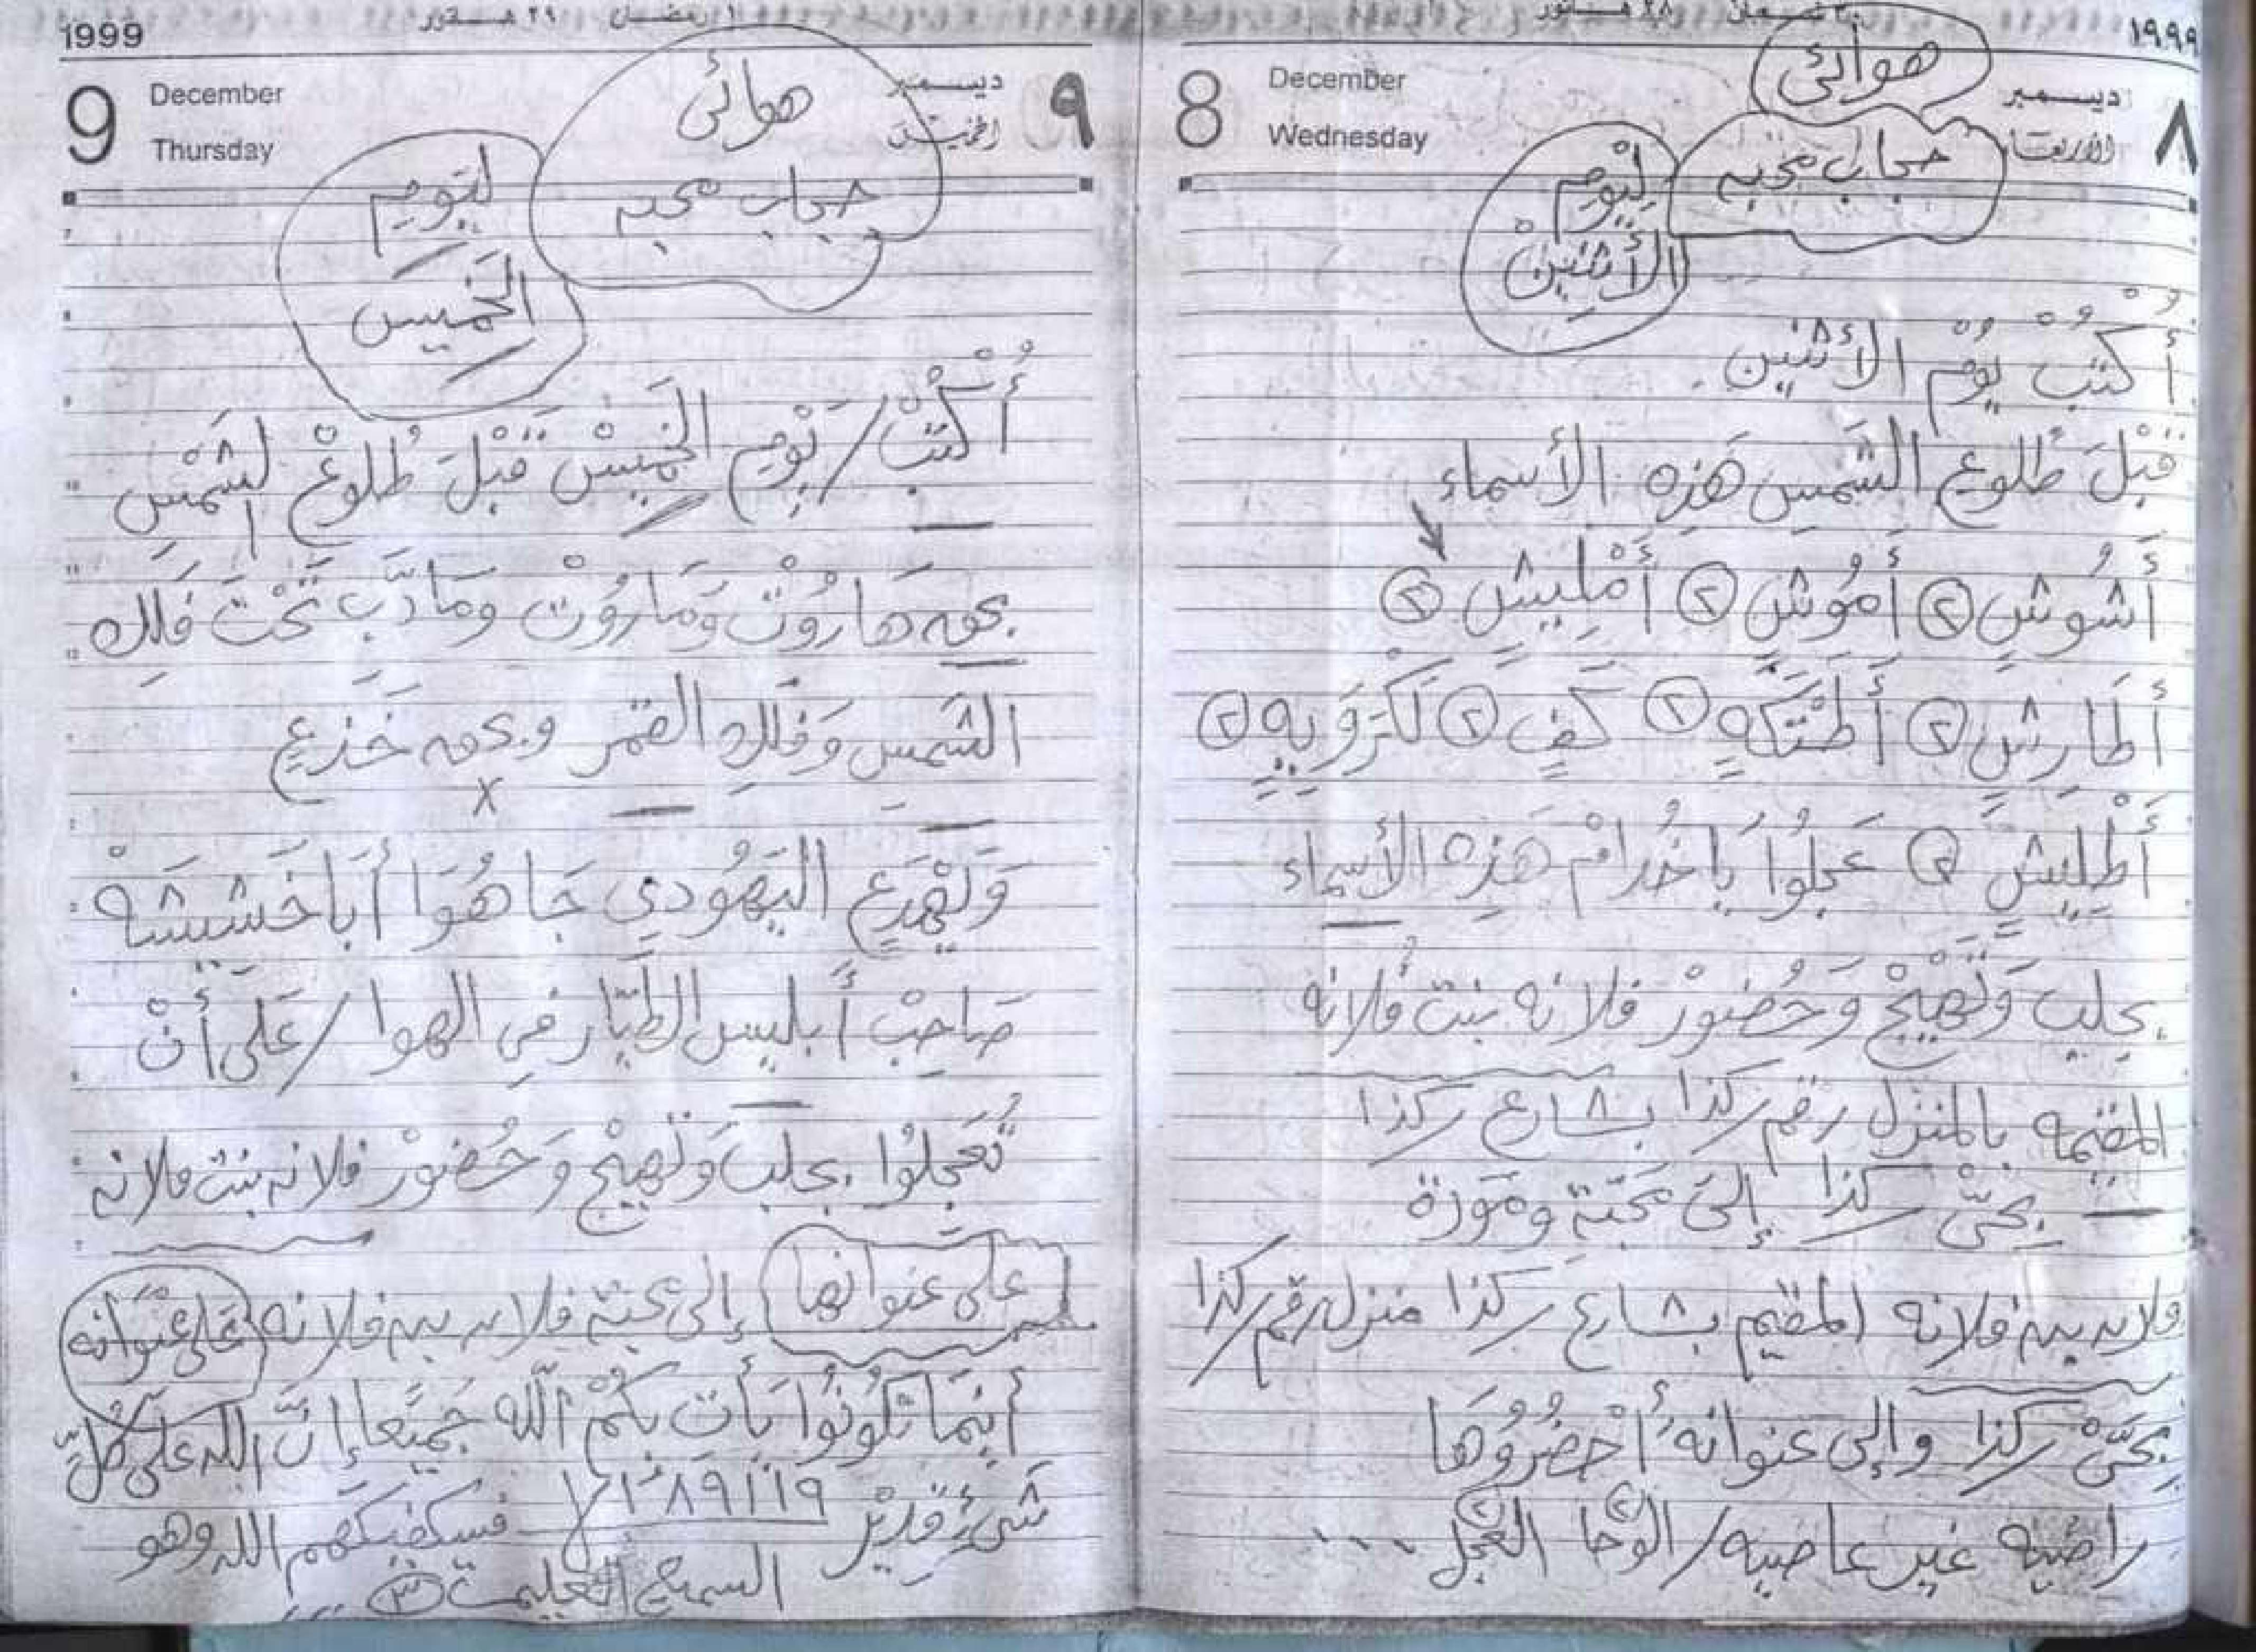 ١٩٩٩
٣٠ شعبان ٢٨ هاتور
٨
ديسمبر
الأربعاء
December
Wednesday
8
هوائي
حجاب محبه
ليَوْمِ
الأثنينْ
أكتبْ يوْم الأثنين.
قبْلَ طُلوعِ الشَّمسِ هَذِهِ الأسماء
أَشُوشٍ ٢ أَمُوشٍ ٢ أَمْلِيشٍ ٢
أَطَارِشٍ ٢ أَطَشَكَهٍ ٢ كَفٍ ٢ لَكْرَوَيهٍ ٢
أَطْلِيشٍ ٢ عَجلُوا ياخُدامْ هَذِه الأسماء
بجلبِ وَتَهْيِيجْ وَحُضورْ فلانه بنت فُلانه
المقيمه بالمنزل رقم كذا بشارع كذا
بحىّ كذا إلىَ مَحَبّة ومَوَدة
فلان بن فلانه المقيم بشارع كذا منزل رقم كذا
بحىّ كذا وإلى عنوانه أحْضُرُوُهَا
راضيه غير عاصيه/ الوَحا ٢ العَجَل ٢ ....
1999
١ رمضان ٢٩ هاتور
٩
ديسمبر
الخميس
December
Thursday
9
هوائي
حجاب محبه
ليَومِ
الخَميس
أُكْتبْ/ يَوْمِ الخَميسْ قَبْلَ طُلوعْ لشَمْسِ
بحق هَارُوْتْ وَمَارُوْتْ وَمَادَبّ تَحْتَ فَلَكِ
الشَمسِ وَفَلكِ القَمَر وبحق خَذعِ
وَلَهْدَعِ اليَهُودِي جَاهُوَا أَبَاخَشِيشَهْ
صَاحِبْ أَبليس الطَّيَّار فِي الهوا/ عَلىَ أَنْ
تُعَجلُوْا بجلبَ وَتَهييجْ وَحُضورْ فلانه بنت فلانه
على عنوانها إلى محبّة فلان بن فلانه عَلى عِنْوَانه
أينَمَا تكُونُوا يَأت بكُمْ اللّه جَمِيَعا إنَّ الله علىَ كُلّ
شَىْءٍ قَدِيْر فسيكفيكهم الله وهو
السميعْ العَليم ٣ ....